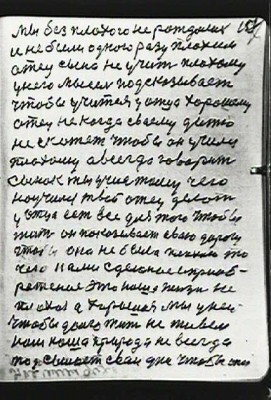 мы без плохого не рождались
и не были одного разу плохим
отец сына не учит плохому
у него мысли подсказывает
чтобы учится у отца хорошому
отец не когда своему дитю
не скажет чтобы он учился
плохому а всегда говорит
сынок ты учис тому чего
научили твой отец делат
у отца ест все для того чтобы
жит он показывает свою дорогу
чтобы она не была плохим это
чего нами сделоное изоб-
ретение это наша жизн не
плохоя а хорошоя мы у ней
чтобы долго жит не живем
нам наша природа не всегда
подсылает свои дне чтобы они